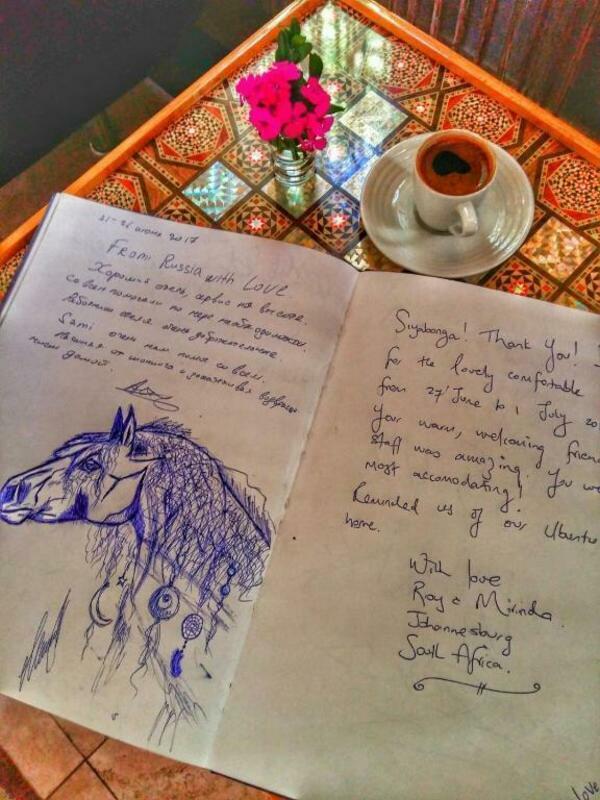 21-26 июня 2017
From Russia with Love
Хороший отель, сервис на высоте.
Со всем помогали по мере необходимости.
Работники отеля очень доброжелательные.
Sami очень нам помог со всем.
Начиная от и заканчивая
домой.
Siyabonga! Thank You!
for the lovely comfortable
from 27 June to 1 July 20
Your warm, welcoming friend
staff was amazing. You we
most accomodating!
Reminded us of our Ubuntu
home.
With love
Roy & Mirinda.
Johannesburg
South Africa.
Love